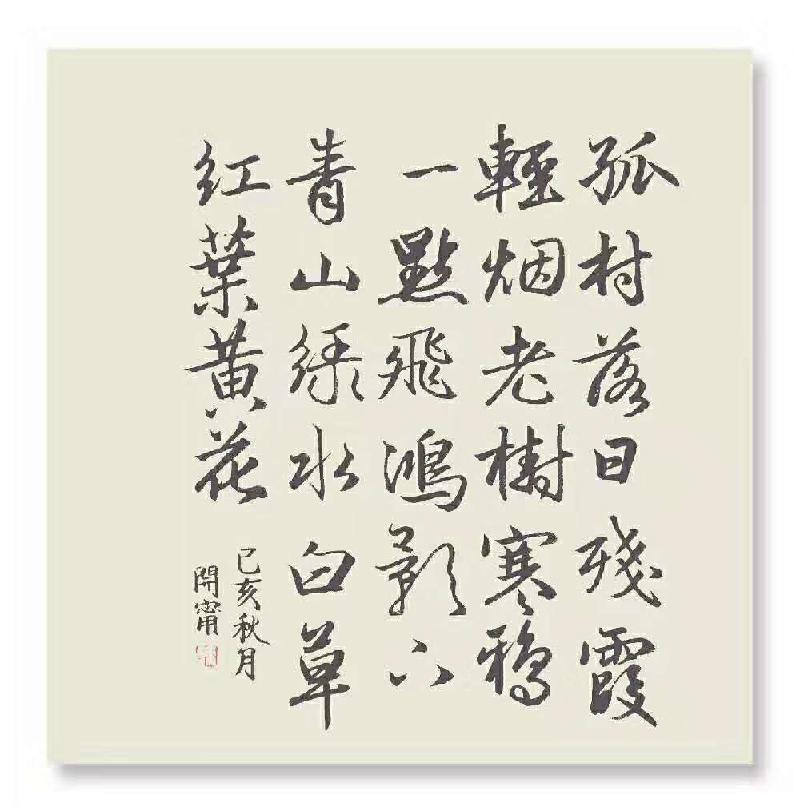 孤村落日殘霞
輕烟老樹寒鴉
一點飛鴻影下
青山綠水白草
红葉黃花
己亥秋月
開甯